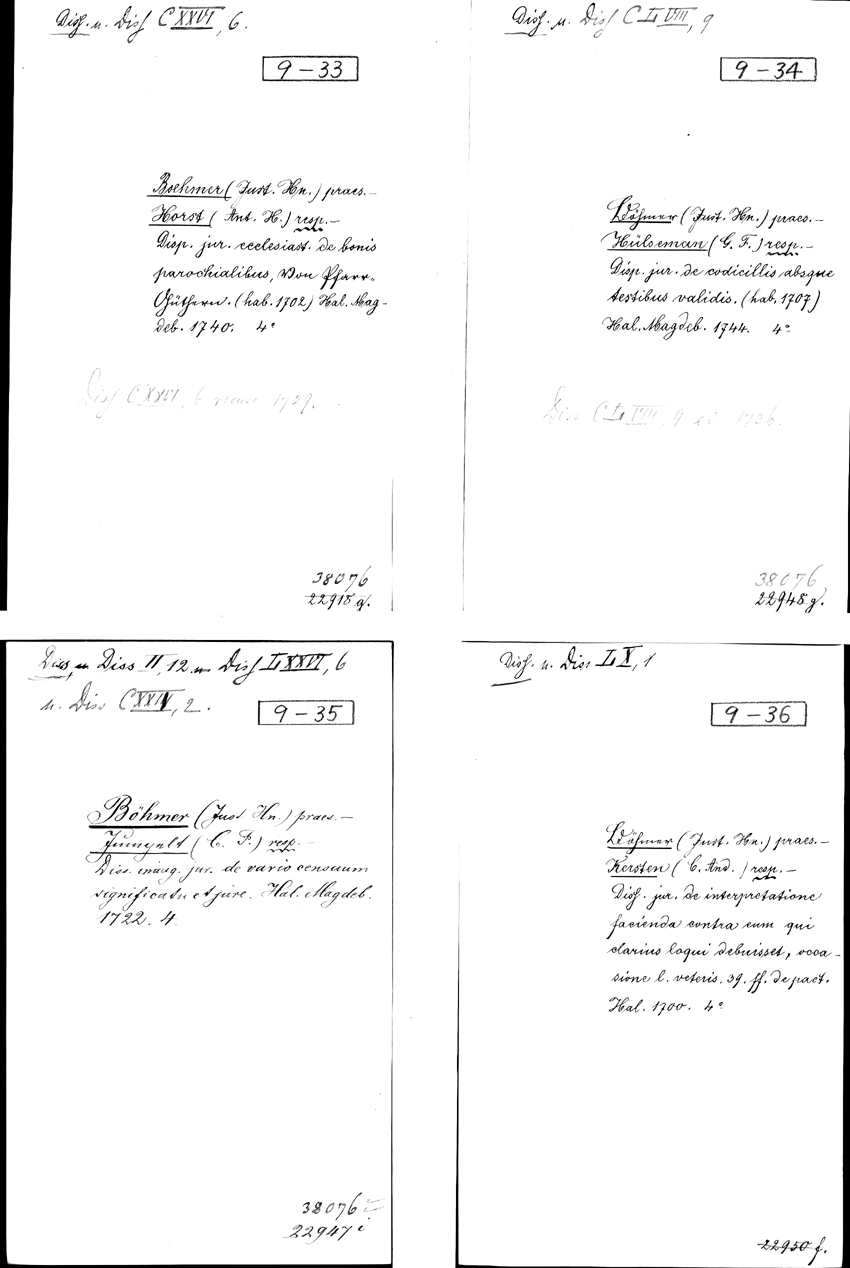 Diss. u. Diss CXXVI, 6.
9 – 33
Boehmer (Just. Hn.) praes. –
Horst (Ant. H.) resp. –
Disp. jur. ecclesiast. de bonis
parochialibus, Von Pfarr-
Güthern. (hab. 1702) Hal. Mag-
deb. 1740. 4°
Diss CXXVI, 6 1729.
38076
22918 g.
Diss. u. Diss CLVIII, 9
9 – 34
Böhmer (Just. Hn.) praes. –
Hülseman (G. F.) resp. –
Disp. jur. de codicillis absque
testibus validis. (hab. 1707)
Hal. Magdeb. 1744. 4°
Diss CLVIII, 9 1736.
38076
22948 g.
Diss. u. Diss II, 12 u. Diss LXXVI, 6
u. Diss , 2.
9 – 35
Böhmer (Just Hn.) praes. –
(C. F.) resp. –
Diss. inaug. jur. de vario censuum
significatu et jure. Hal. Magdeb.
1722. 4
38076 i
22947 i
Diss. u. Diss LX, 1
9 – 36
Böhmer (Just. Hn.) praes. –
Kersten (C. And.) resp. –
Diss. jur. de interpretatione
facienda contra eum qui
clarius loqui debuisset, occa-
sione l. veteris. 39. ff. de pact.
Hal. 1700. 4°
22950 f.